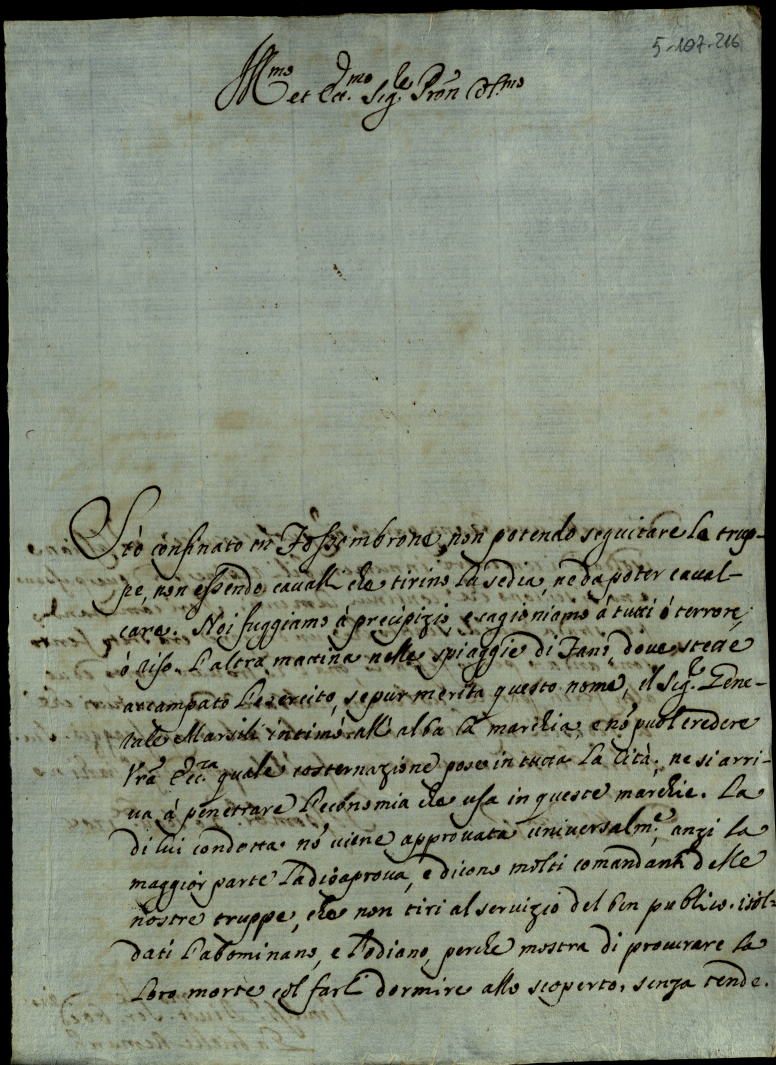 5-107-216
Ill.mo et Ecc.mo Sig.re Pron Col.mo
Stò confinato in Fossembrone, non potendo seguitare le trup-
pe, non essendo cavalli che tirino la sedia, ne da poter caval-
care. Noi fuggiamo á precipizio, e cagioniamo á tutti ó terrore,
ó riso. L'altra matina nelle spiaggie di Fano, dove stette
accampato l'esercito, se pur merita questo nome, il Sig.re Gene-
rale Marsili intimó all'alba la marchia, e nó puol credere
Vrã Ecc.za quale costernazione pose in tutta la Città; ne si arri-
va á penetrare l'economia che usa in queste marchie. La
di lui condotta nó viene approvata universalm.e, anzi la
maggior parte la disaprova, e dicono molti comandanti delle
nostre truppe, che non tiri al servizio del ben publico. i sol-
dati l'abominano, e l'odiano, perche mostra di procurare la
loro morte col farli dormire allo scoperto, senza tende.